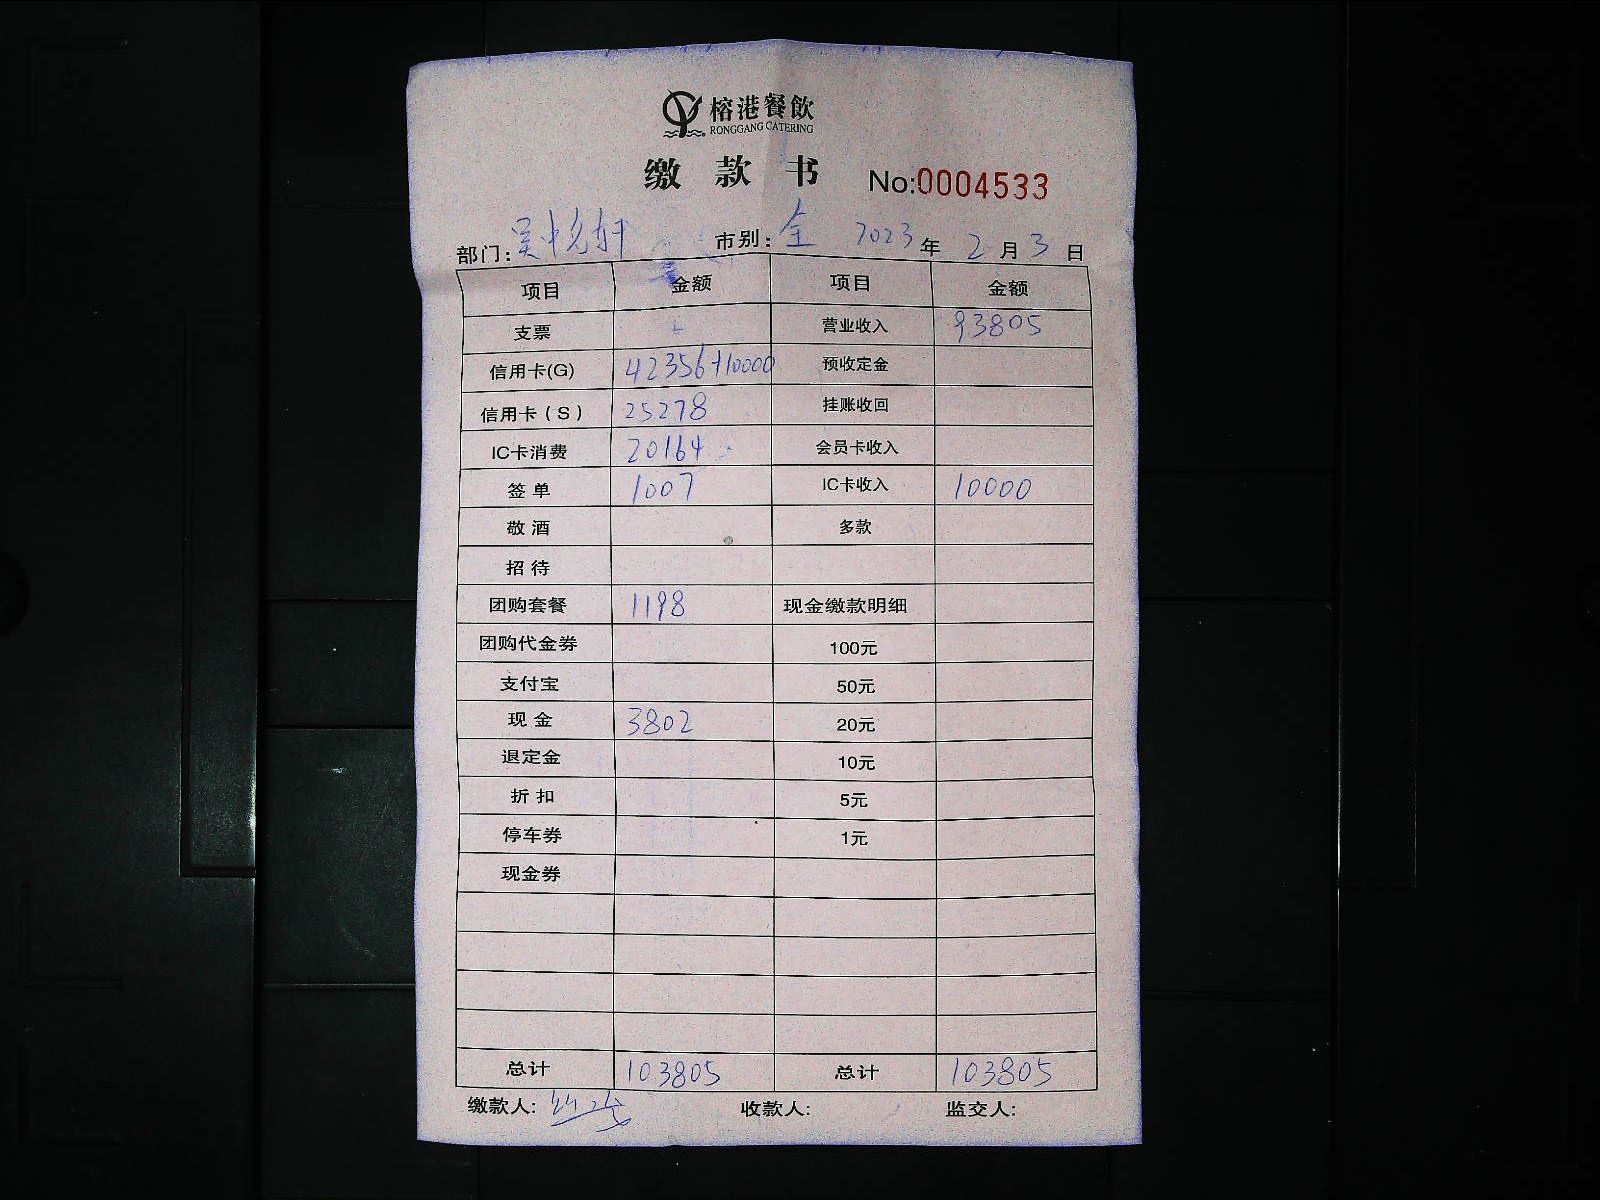 榕港餐飲
RONGGANG CATERING
缴 款 书 No:0004533
部门: 市别: 全 2023 年 2 月 3 日
项目 金额 项目 金额
支票 营业收入 93805
信用卡(G) 42356+10000 预收定金
信用卡(S) 25278 挂账收回
IC卡消费 20164 会员卡收入
签 单 1007 IC卡收入 10000
敬 酒 多款
招 待
团购套餐 1198 现金缴款明细
团购代金券 100元
支付宝 50元
现 金 3802 20元
退定金 10元
折 扣 5元
停车券 1元
现金券
总计 103805 总计 103805
缴款人: 收款人: 监交人: